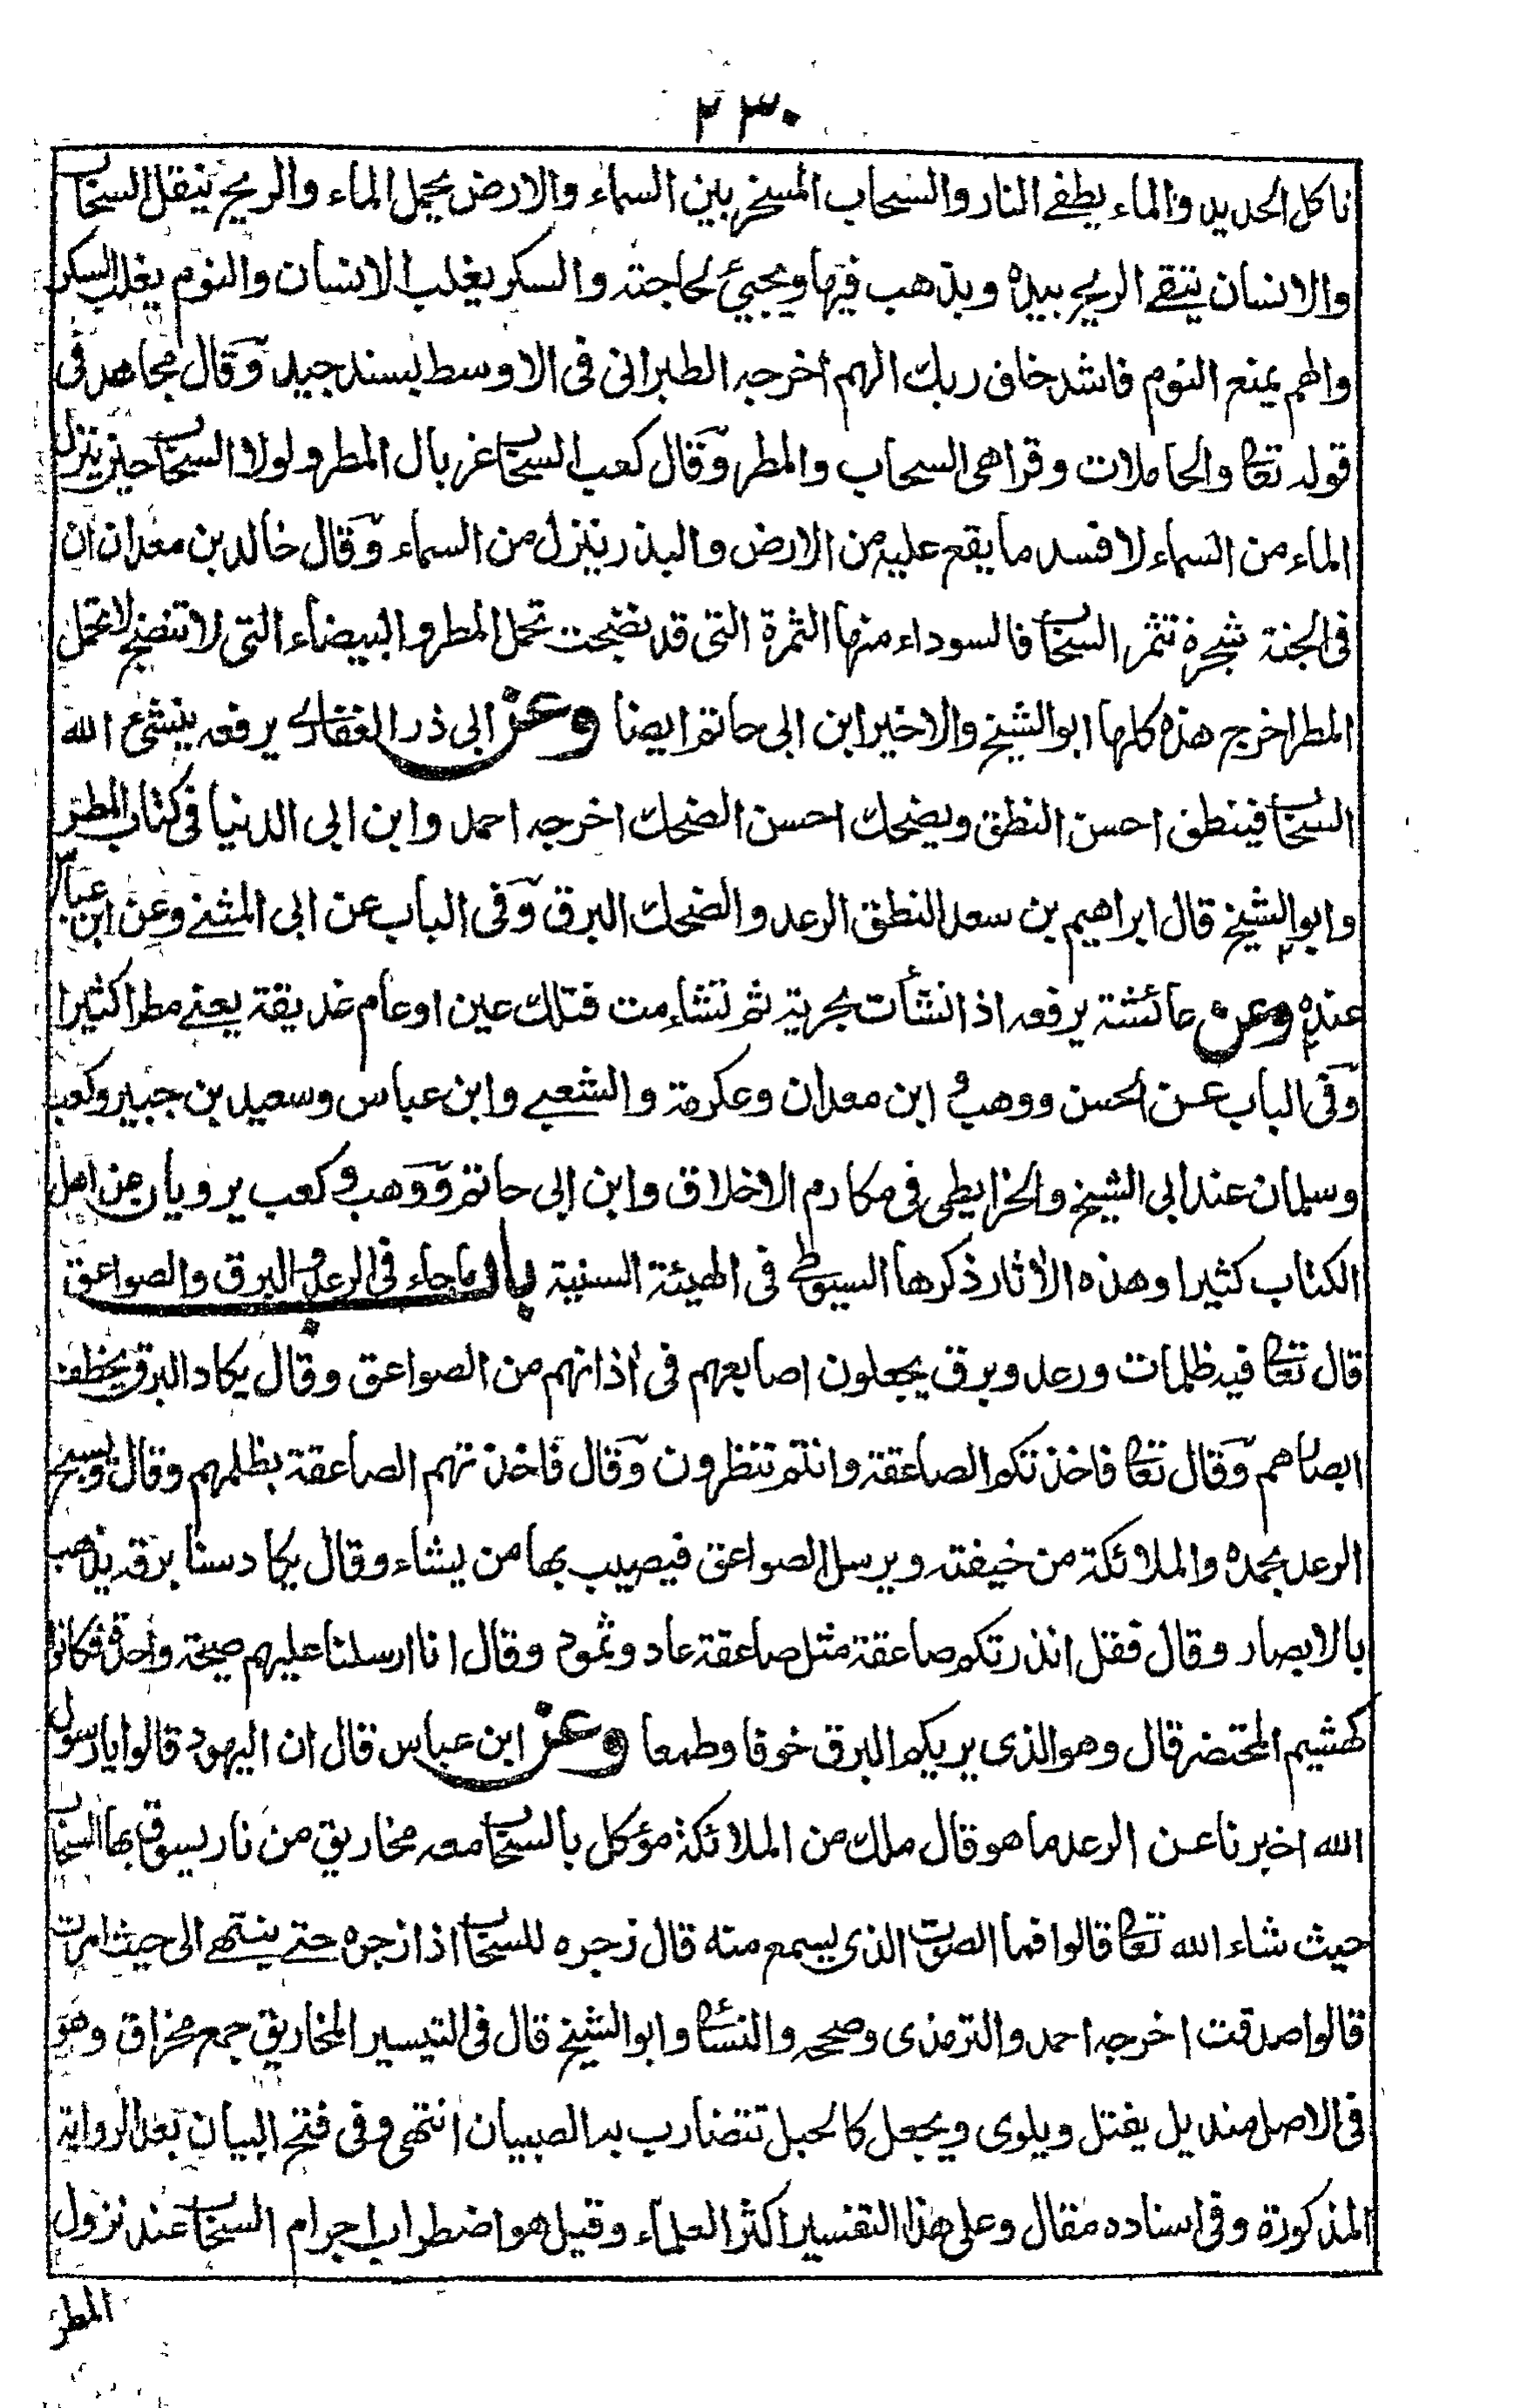 ٢٣٠
تاكل الحديد والماء يطفے النار والسحاب المسخر بين السماء والارض يحمل الماء والريح ينقل السحاب
والانسان يتقے الريح بيده ويذهب فيها ويجيئ لحاجته والسكر يغلب الانسان والنوم يغلب السكر
والهم يمنع النوم فاشد خلق ربك الهم أخرجه الطبرانى فى الاوسط بسند جيد وقال مجاهد فى
قوله تعالى والحاملات وقرا هى السحاب والمطر وقال كعب السحاب غربال المطر ولولا السحاب حين ينزل
الماء من السماء لافسد ما يقع عليه من الارض والبذر ينزل من السماء وقال خالد بن معدان ان
فى الجنة شجرة تثمر السحاب فالسوداء منها الثمرة التى قد نضجت تحمل المطر والبيضاء التى لا تنضج لا تحمل
المطر اخرج هذه كلها ابو الشيخ والاخير ابن ابى حاتم ايضا وعن ابى ذر الغفارے يرفعه ينشئ الله
السحاب فينطق احسن النطق ويضحك احسن الضحك اخرجه احمد وابن ابى الدنيا فى كتاب المطر
وابو الشيخ قال ابراهيم بن سعد النطق الرعد والضحك البرق وفى الباب عن ابى المثنے وعن ابن عباس
عنده وعن عائشة يرفعه اذا نشأت بحرية ثم تشاءمت فتلك عين او عام غديقة يعنے مطرا كثيرا
وفى الباب عن الحسن ووهب و ابن معدان وعكرمة والشعبے وابن عباس وسعيد بن جبير وكعب
وسلمان عند ابى الشيخ والخرايطى فى مكارم الاخلاق وابن ابى حاتم ووهب وكعب يرويان من اهل
الكتاب كثيرا وهذه الأثار ذكرها السيوطے فى الهيئة السنية باب ما جاء فى الرعد والبرق والصواعق
قال تعالى فيه ظلمات ورعد وبرق يجعلون اصابعهم فى أذانهم من الصواعق وقال يكاد البرق يخطف
ابصارهم وقال تعالى فاخذتكم الصاعقة وانتم تنظرون وقال فاخذتهم الصاعقة بظلمهم وقال ويسبح
الرعد بحمده والملائكة من خيفته ويرسل الصواعق فيصيب بها من يشاء وقال يكاد سنا برقه يذهب
بالابصار وقال فقل انذرتكم صاعقة مثل صاعقة عاد وثمود وقال انا ارسلنا عليهم صيحة واحدة فكانوا
كهشيم المحتضر قال وهو الذى يريكم البرق خوفا وطمعا وعن ابن عباس قال ان اليهود قالوا يا رسول
الله اخبرنا عن الرعد ما هو قال ملك من الملائكة مؤكل بالسحاب معه مخاريق من نار يسوق بها السحاب
حيث شاء الله تعالى قالوا فما الصوت الذى يسمع منه قال زجره للسحاب اذا زجره حتے ينتهے الى حيث امرت
قالوا صدقت اخرجه احمد والترمذى وصححه والنسائى وابو الشيخ قال فى التيسير المخاريق جمع مخراق وهو
فى الاصل منديل يفتل ويلوى ويجعل كالحبل تتضارب به الصبيان انتهى وفى فتح البيان بعد الرواية
المذكورة وفى اسناده مقال وعلى هذا التفسير اكثر العلماء وقيل هو اضطراب اجرام السحاب عند نزول
المطر